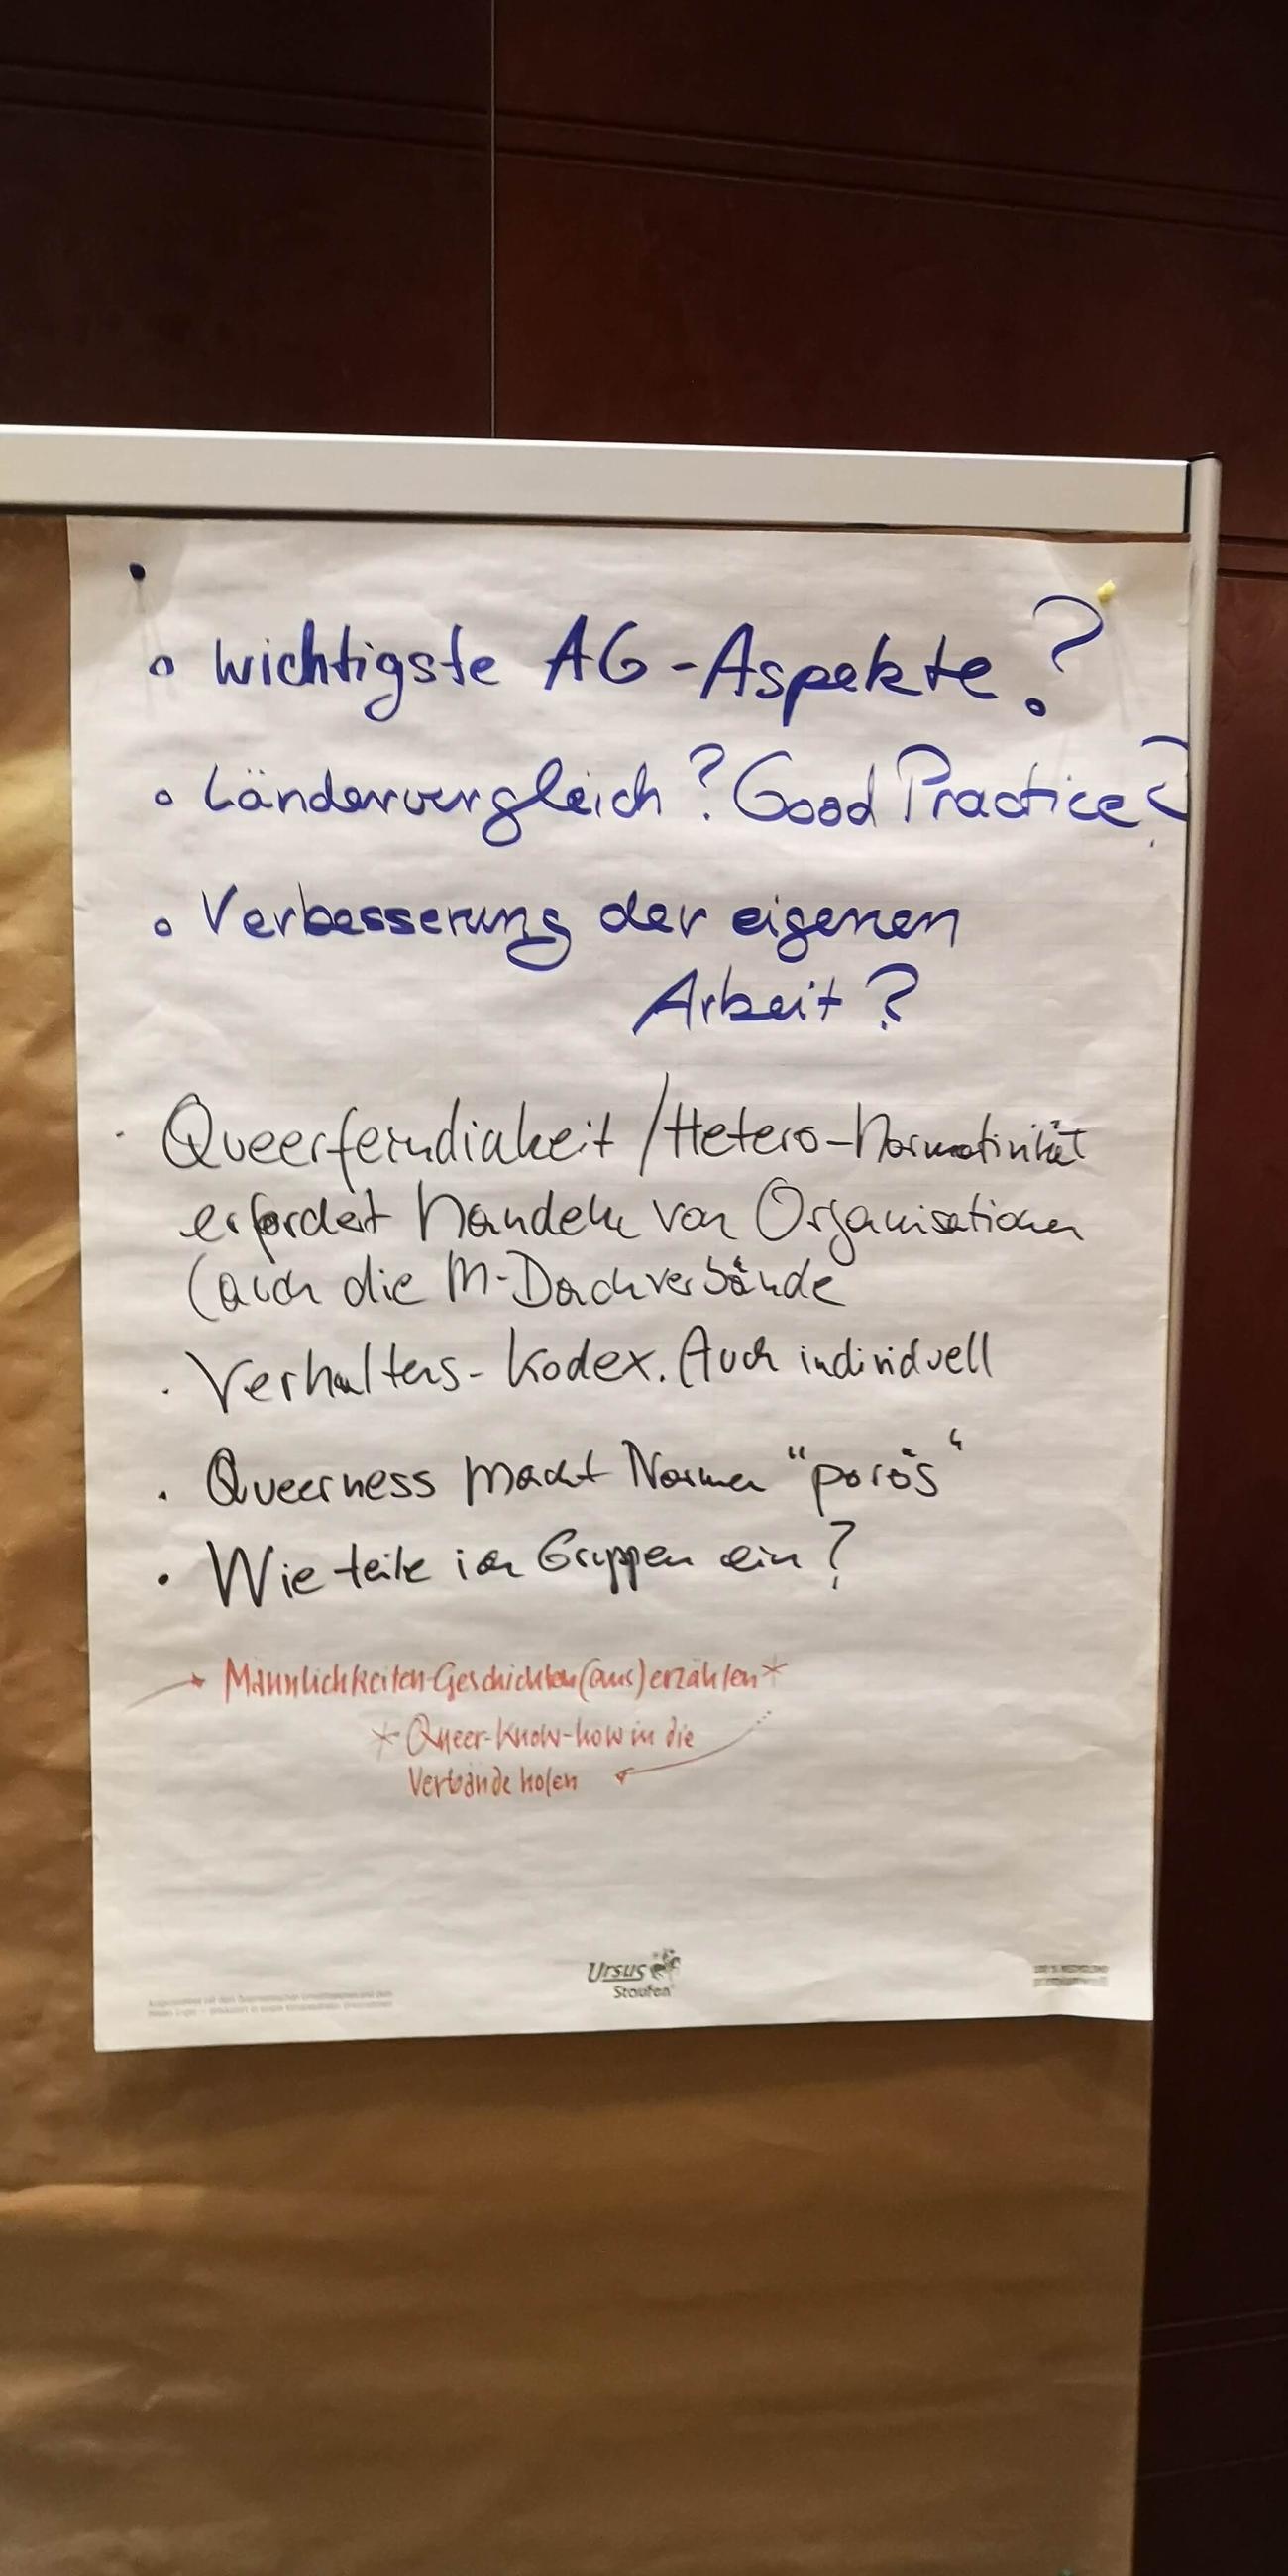 ∘ wichtigste AG-Aspekte?
∘ Ländervergleich? Good Practice?
∘ Verbesserung der eigenen
Arbeit?
· Queerfeindlichkeit / Hetero-Normativität
erfordert Handeln von Organisationen
(auch die M-Dachverbände
· Verhaltens-Kodex. Auch individuell
· Queerness macht Normen "porös"
· Wie teile ich Gruppen ein?
→ Männlichkeiten-Geschichten (aus)erzählen*
* Queer-Know-how in die
Verbände holen
Ursus
Staufen